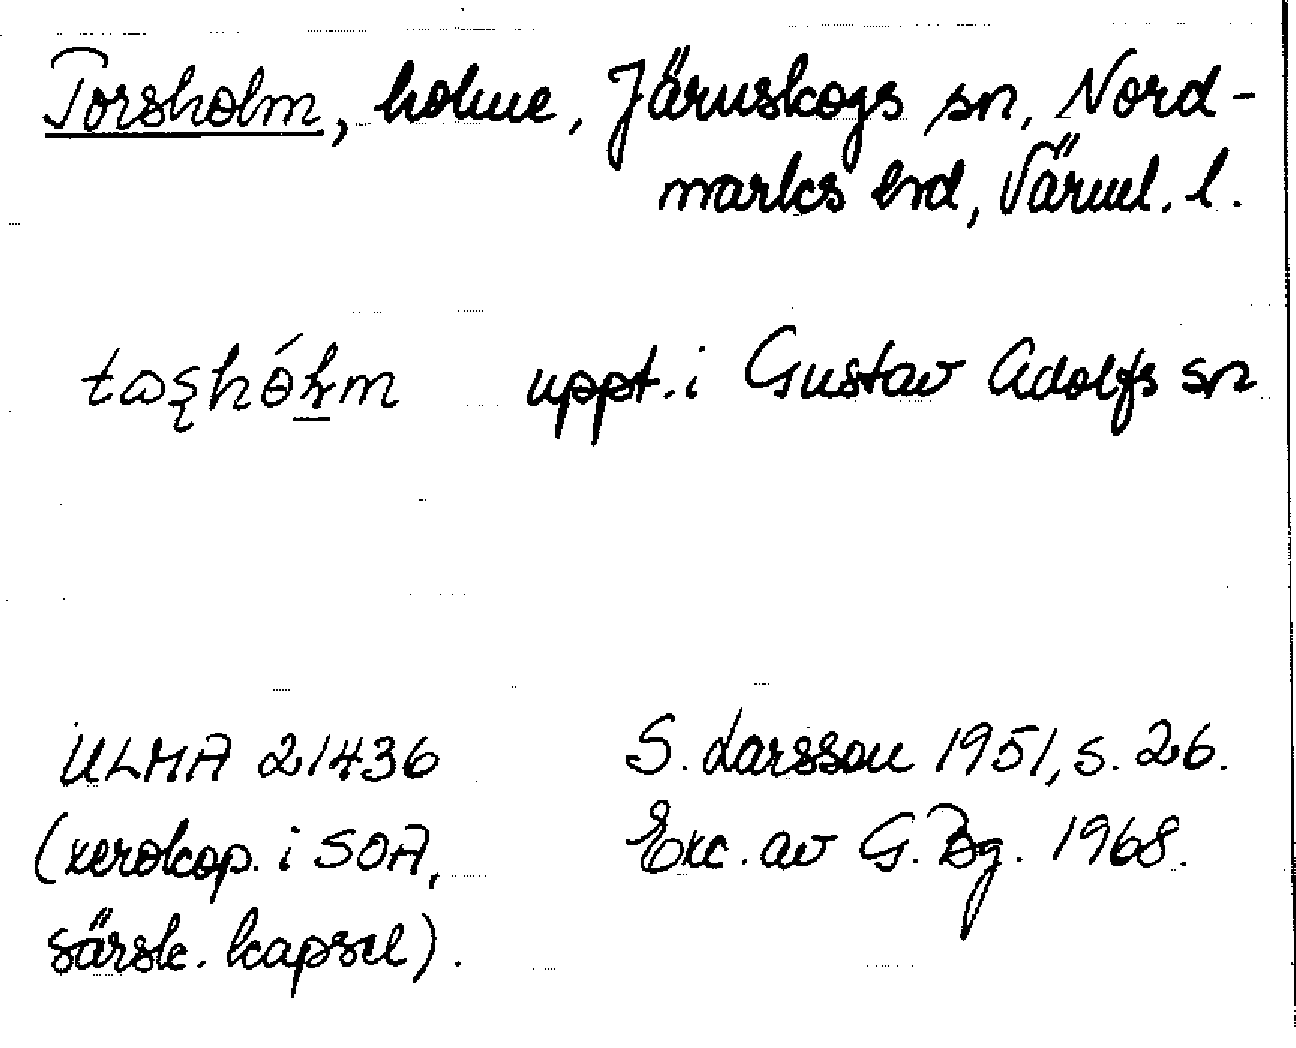 Torsholm, holme, Järnskogs sn, Nord-
marks hrd, Värml. l.
uppt. i Gustav Adolfs sn
ULMA 21436 S. Larsson 1951, s. 26.
(xerokop. i SOA, Exc. av G. Bg. 1968.
särsk. kapsel).